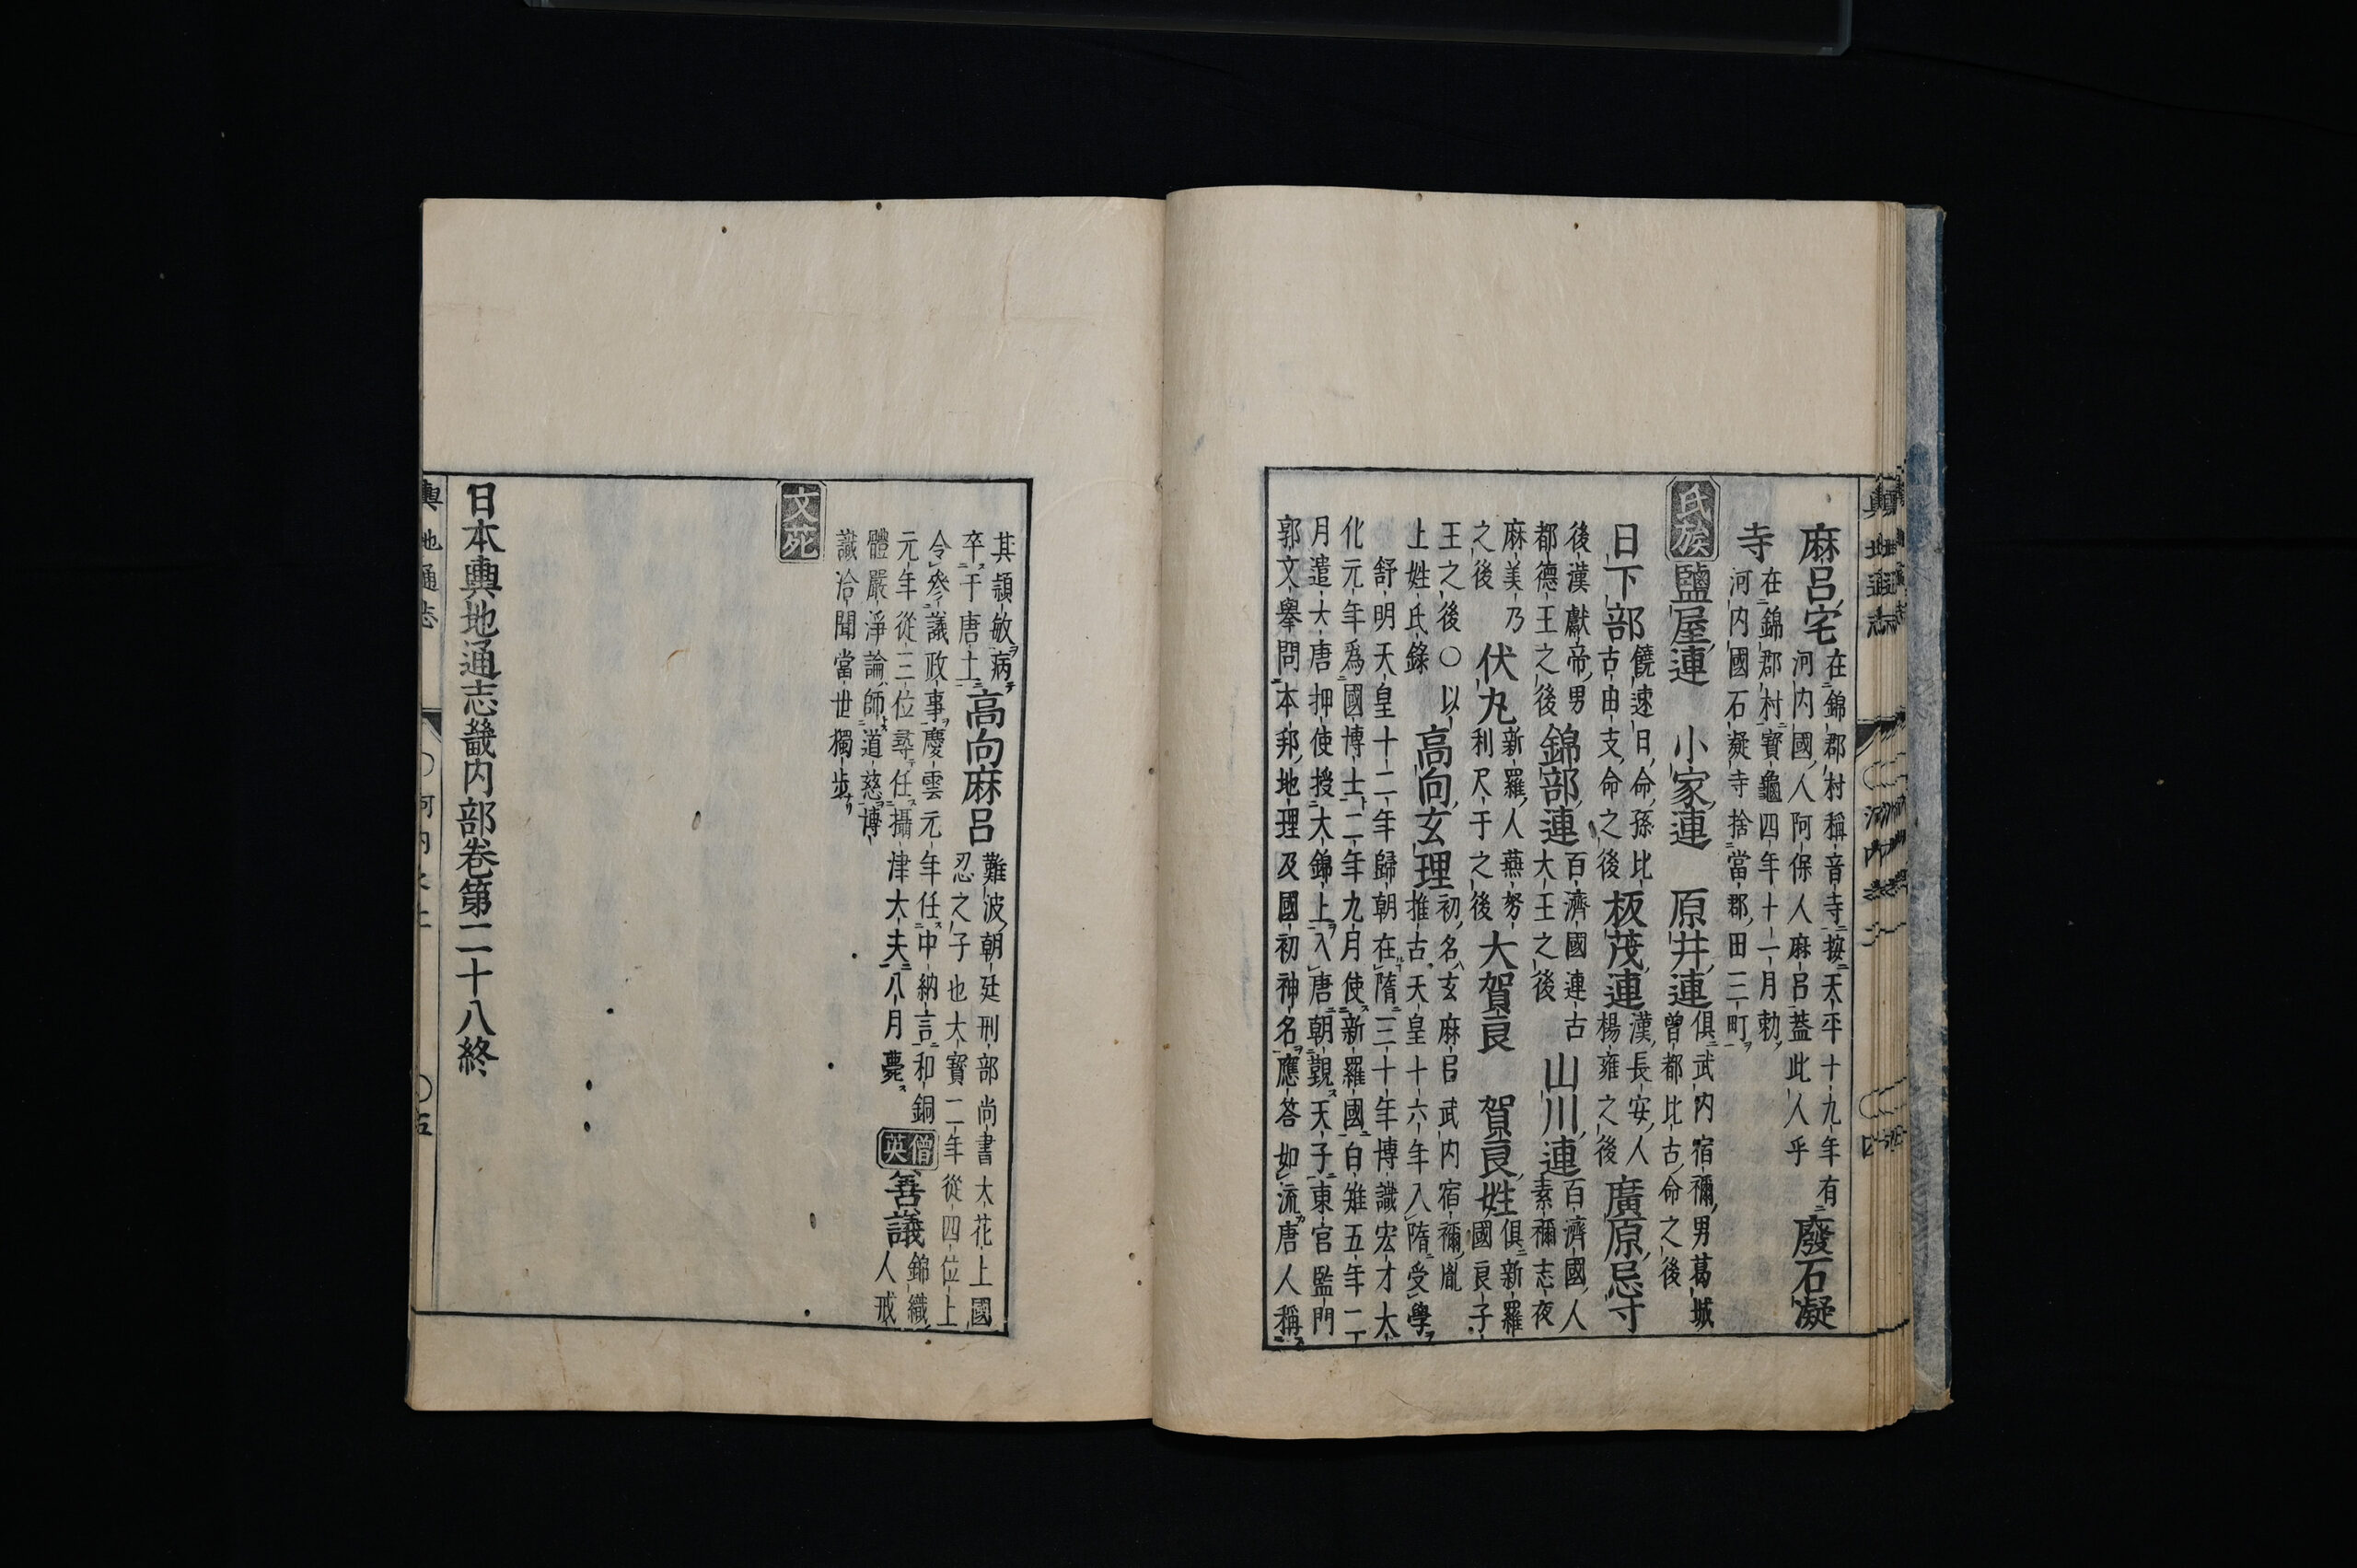 麻呂宅
在錦郡村稱音寺按天平十九年有
河内國人阿保人麻呂蓋此人乎
廢石凝
寺
在錦郡村寳龜四年十一月勅
河内國石凝寺捨當郡田三町
氏族
鹽屋連 小家連 原井連
俱武内宿禰男葛城
曾都比古命之後
日下部
饒速日命孫比
古由支命之後
板茂連
漢長安人
楊雍之後
廣原忌寸
後漢獻帝男
都德王之後
錦部連
百濟國速古
大王之後
山川連
百濟國人
素禰志夜
麻美乃
之後
伏丸
新羅人燕努
利尺于之後
大賀良 賀良姓
俱新羅
國良子
王之後○以
上姓氏錄
高向玄理
初名玄麻呂武内宿禰胤
推古天皇十六年入隋受學
舒明天皇十二年歸朝在隋三十年博識宏才大
化元年爲國博士二年九月使新羅國白雉五年二
月遣大唐押使授大錦上入唐朝觀天子東宮監門
郭文擧問本邦地理及國初神名應答如流唐人稱
其穎敏病
卒于唐土
高向麻呂
難波朝廷刑部尚書大花上國
忍之子也大寳二年從四位上
令參議政事慶雲元年任中納言和銅
元年從三位尋任攝津大夫八月薨
僧英
善議
錦織
人戒
體嚴淨論師道慈博
識洽聞當世獨步
文苑
日本輿地通志畿内部卷第二十八終
輿地通志